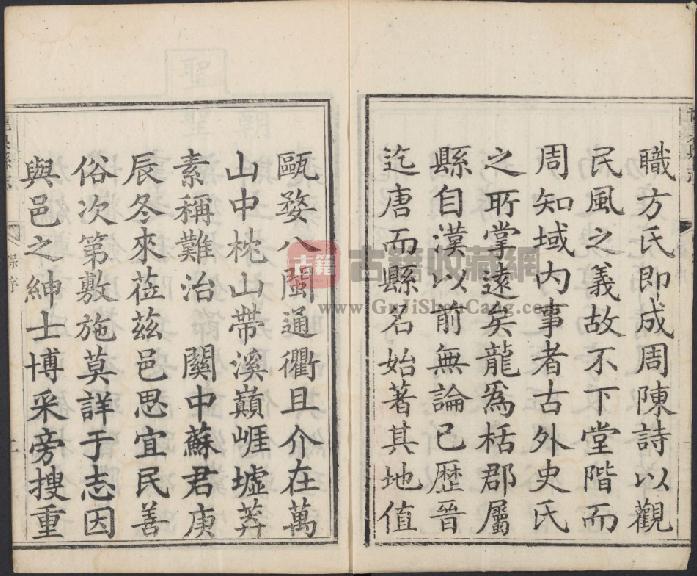 職方氏即成周陳詩以觀
民風之義故不下堂階而
周知域内事者古外史氏
之所掌遠矣龍為栝郡屬
縣自漢以前無論已歷晉
迄唐而縣名始著其地值
甌婺八閩通衢且介在萬
山中枕山帶溪巔崕墟莽
素稱難治 關中蘇君庚
辰冬來莅茲邑思宜民善
俗次第敷施莫詳于志因
與邑之紳士博采旁搜重
古籍
古籍收藏網
www.GuJiShouCang.com